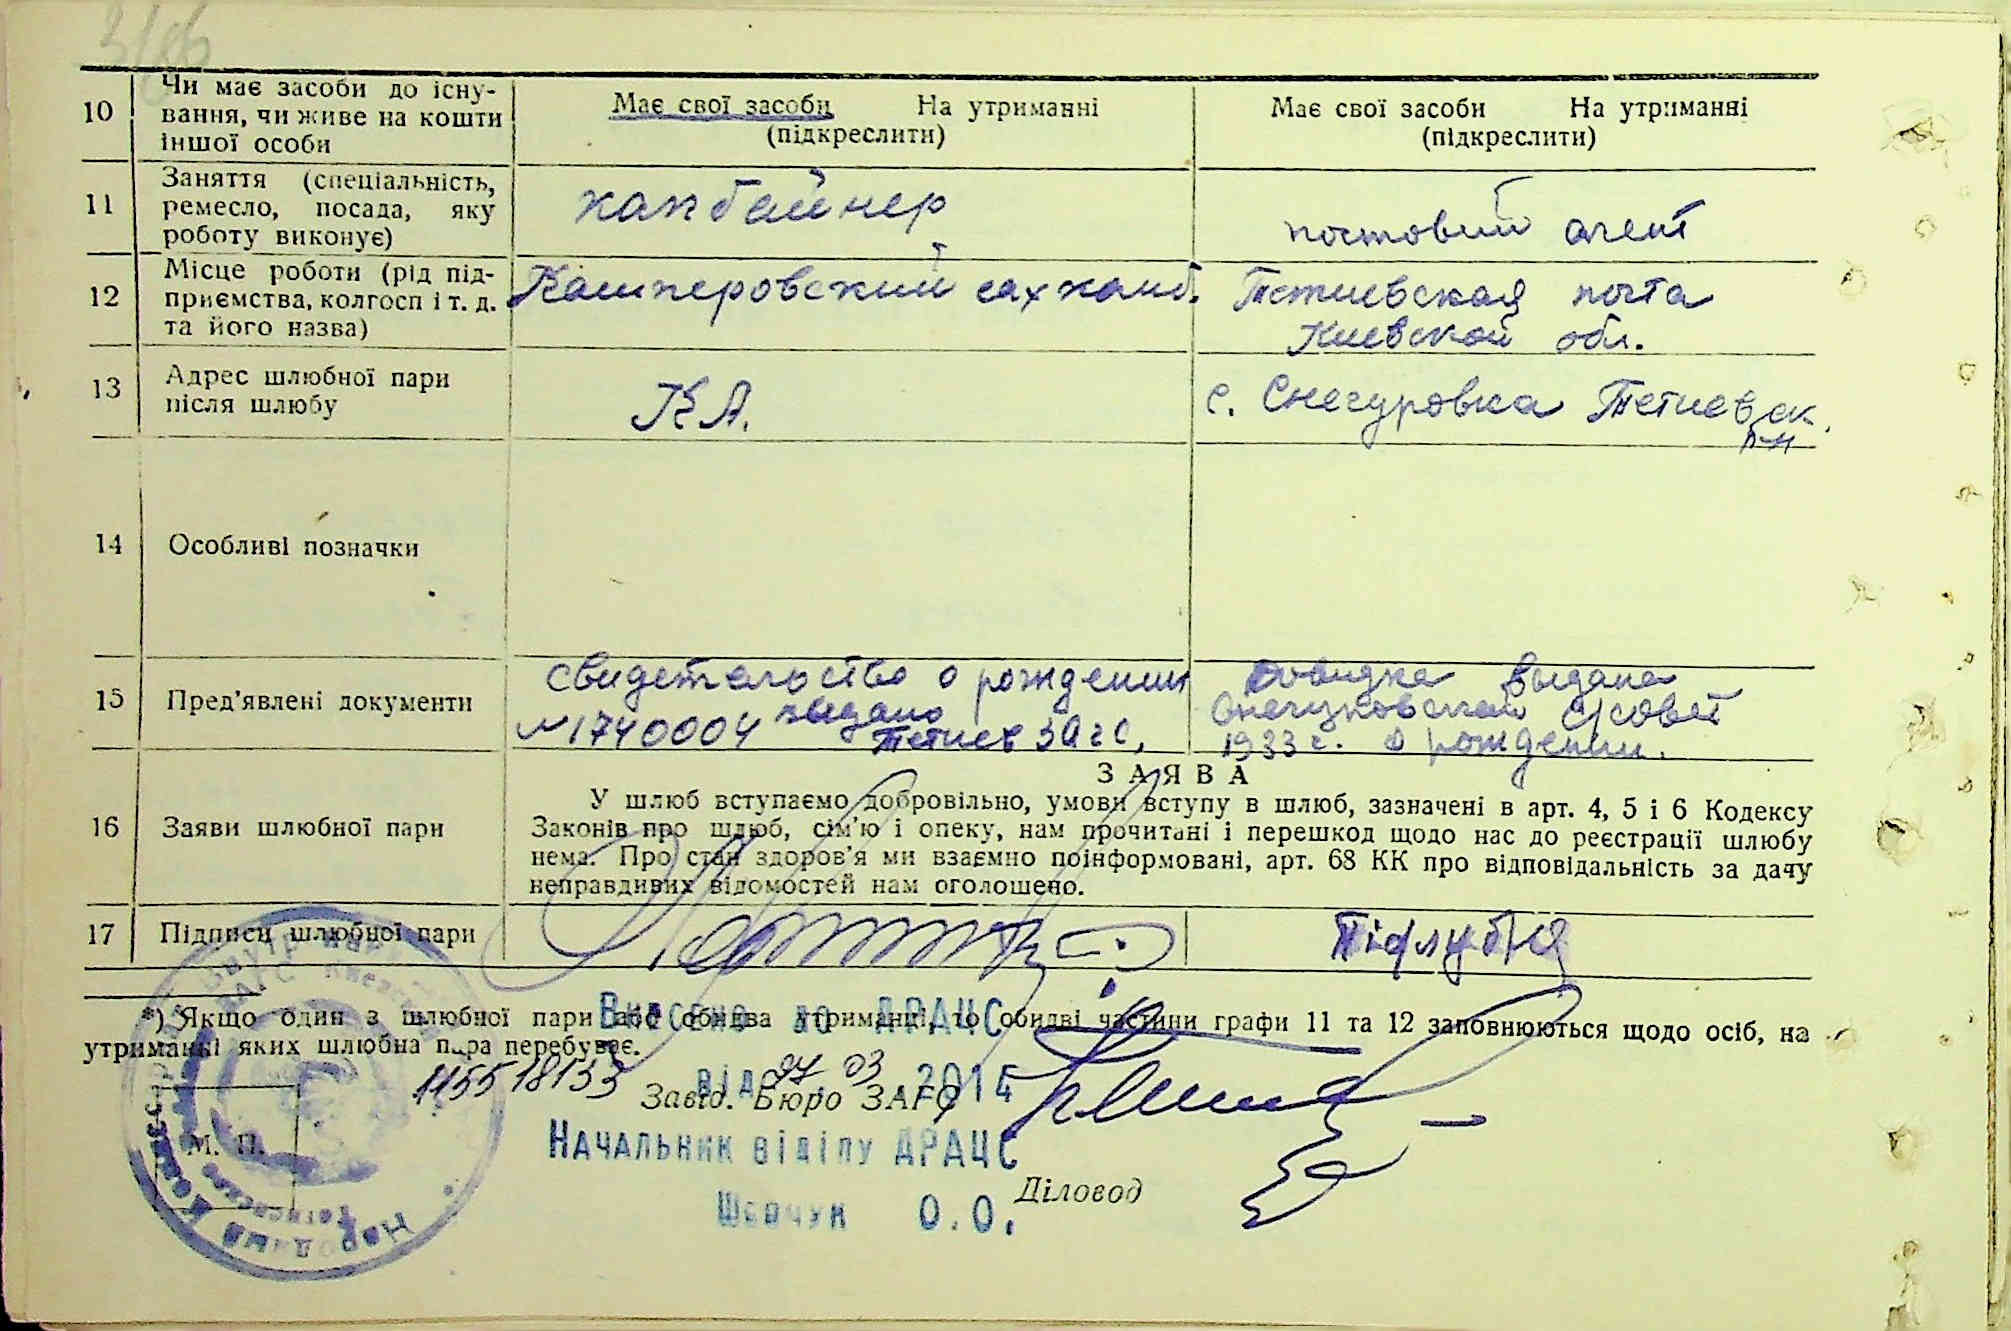 3/86
10 Чи має засоби до існу-
вання, чи живе на кошти
іншої особи
Має свої засоби На утриманні
(підкреслити)
Має свої засоби На утриманні
(підкреслити)
11 Заняття (спеціальність,
ремесло, посада, яку
роботу виконує)
комбайнер
почтовий агент
12 Місце роботи (рід під-
приємства, колгосп і т. д.
та його назва)
Кашперовский сахкомб.
Тетиевская почта
Киевской обл.
13 Адрес шлюбної пари
після шлюбу
К А.
с. Снегуровка Тетиевск.
р-н
14 Особливі позначки
15 Пред'явлені документи
Свидетельство о рождении
№1740004 выдано
Тетиев
Довидка выдана
Снегуровской с/совет
1933 г. о рождении.
16 Заяви шлюбної пари
ЗАЯВА
У шлюб вступаємо добровільно, умови вступу в шлюб, зазначені в арт. 4, 5 і 6 Кодексу
Законів про шлюб, сім'ю і опеку, нам прочитані і перешкод щодо нас до реєстрації шлюбу
нема. Про стан здоров'я ми взаємно поінформовані, арт. 68 КК про відповідальність за дачу
неправдивих відомостей нам оголошено.
17 Підписи шлюбної пари
Підлубня
*) Якщо один з шлюбної пари або обидва утриманні, то обидві частини графи 11 та 12 заповнюються щодо осіб, на
утриманні яких шлюбна пара перебуває.
Внесено до ДРАЦС
115518153
від 27 03 2015
Завід. Бюро ЗАГС
М. П.
Начальник відділу ДРАЦС
Діловод
Шевчук О.О.